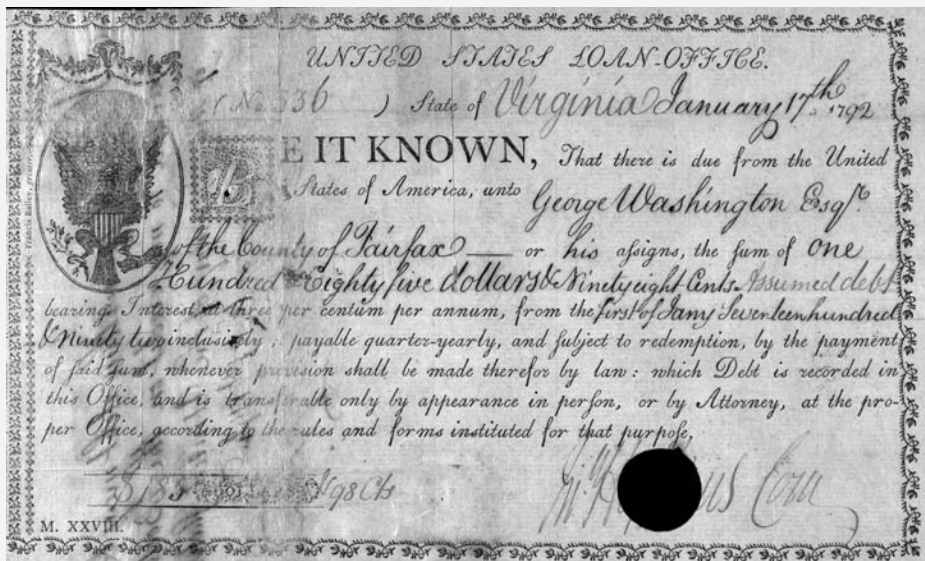 UNITED STATES LOAN-OFFICE.
(No 336 ) State of Virginia January 17th 1792
BE IT KNOWN, That there is due from the United
States of America, unto George Washington Esqr.
of the County of Fairfax — or his aſsigns, the ſum of one
Hundred & Eighty five dollars & Ninety eight Cents Assumed debt
bearing Intereſt at three per centum per annum, from the first of Jany Seventeen hundred
& Ninety two incluſively; payable quarter-yearly, and ſubject to redemption, by the payment
of ſaid ſum, whenever proviſion ſhall be made therefor by law: which Debt is recorded in
this Office, and is transferable only by appearance in perſon, or by Attorney, at the pro-
per Office, according to the rules and forms inſtituted for that purpoſe.
$185 98 Cts
M. XXVIII.
Francis Bailey, printer.